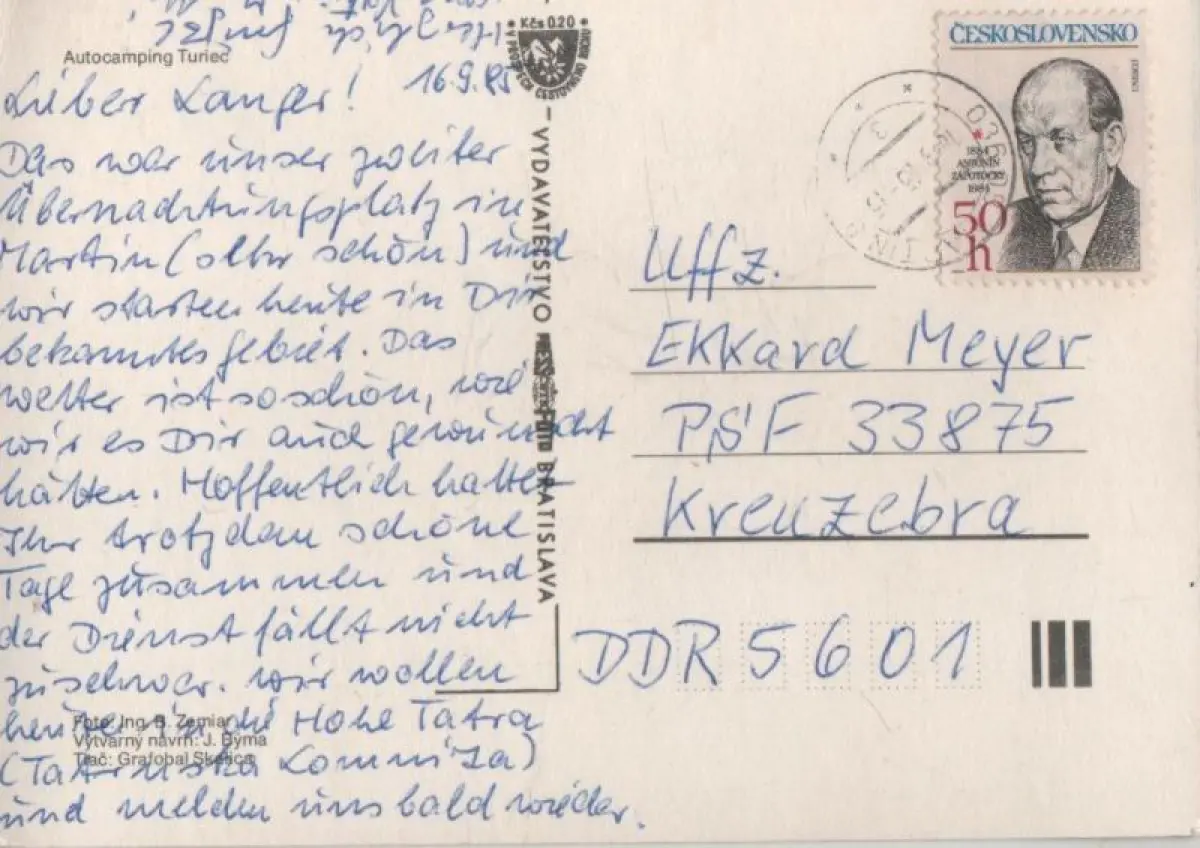 Autocamping Turiec
16.9.85
Lieber Langer!
Das war unser zweiter
Übernachtungsplatz in
Martin (sehr schön) und
wir starten heute in Dir
bekanntes gebiet. Das
Wetter ist so schön, wie
wir es Dir auch gewünscht
hätten. Hoffentlich hattet
Ihr trotzdem schöne
Tage zusammen und
der Dienst fällt nicht
zu schwer. Wir wollen
heute in die Hohe Tatra
(Tatranska Lomniza)
und melden uns bald wieder.
Herzlich
Foto: Ing. B. Zemiar
Výtvarný návrh: J. Býma
Tlač: Grafobal Skalica
Kčs 0.20
VYDAVATEĽSTVO
FOTO BRATISLAVA
ČESKOSLOVENSKO
1884
ANTONÍN
ZÁPOTOCKÝ
1984
50
h
Uffz.
Ekkard Meyer
PSF 33875
Kreuzebra
DDR 5601